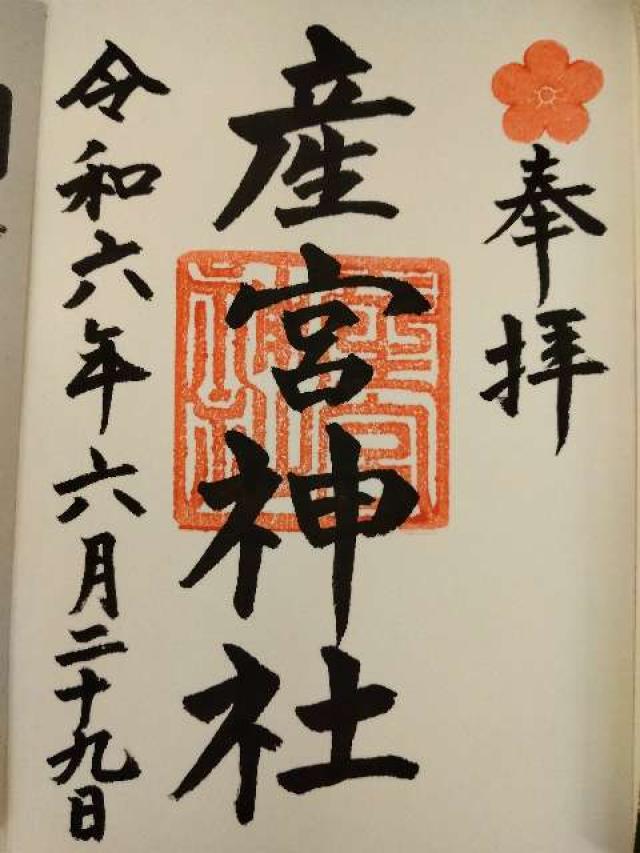 奉拝
産宮神社
令和六年六月二十九日